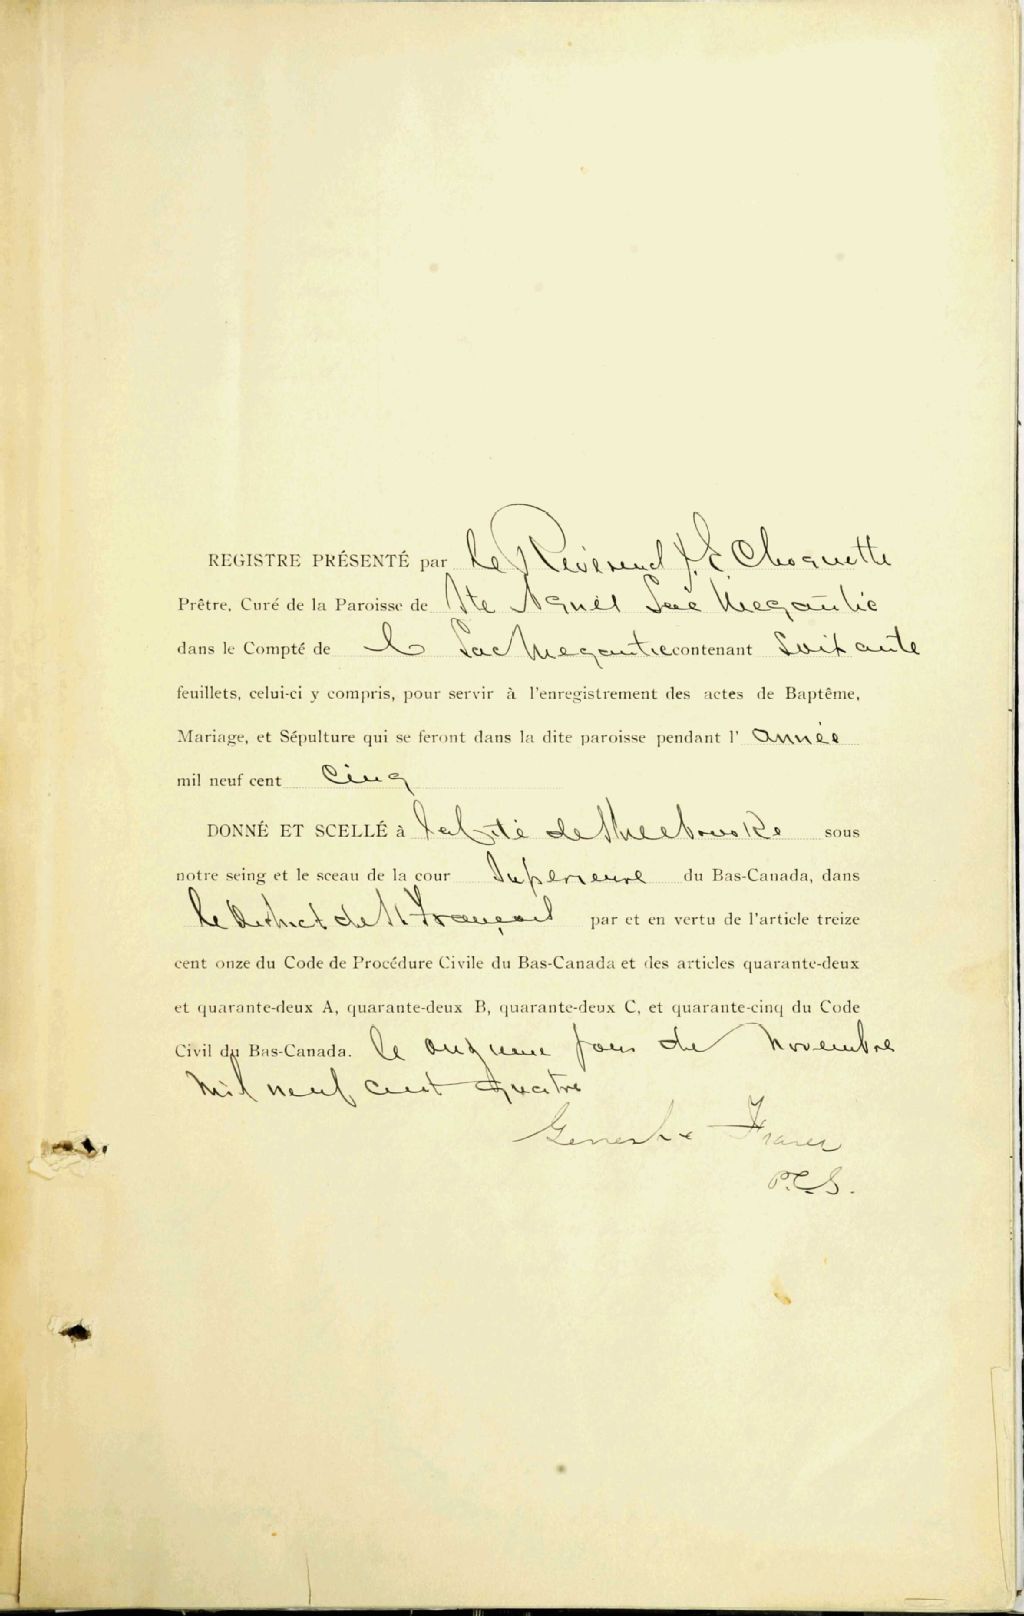 REGISTRE PRÉSENTÉ par le Révérend J. E. Choquette
Prêtre, Curé de la Paroisse de Ste Agnès Lac Megantic
dans le Compté de Lac Megantic contenant Soixante
feuillets, celui-ci y compris, pour servir à l'enregistrement des actes de Baptême,
Mariage, et Sépulture qui se feront dans la dite paroisse pendant l' année
mil neuf cent Cinq
DONNÉ ET SCELLÉ à la Cité de Sherbrooke sous
notre seing et le sceau de la cour Supérieure du Bas-Canada, dans
le District de St François par et en vertu de l'article treize
cent onze du Code de Procédure Civile du Bas-Canada et des articles quarante-deux
et quarante-deux A, quarante-deux B, quarante-deux C, et quarante-cinq du Code
Civil du Bas-Canada. le onzieme jour de Novembre
Mil neuf cent quatre
P.C.S.